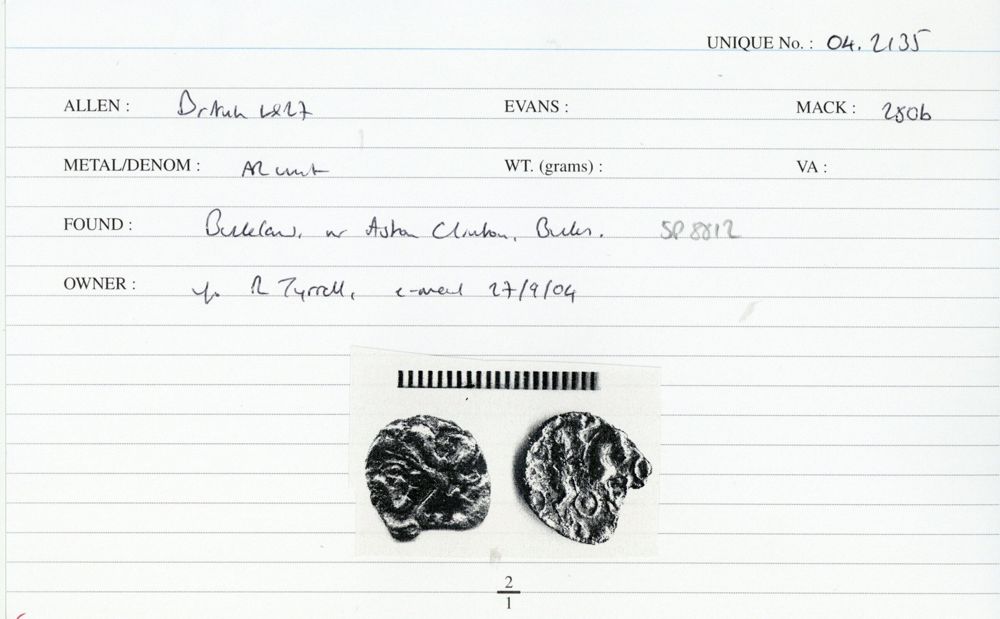 UNIQUE No. : 04.2135
ALLEN : British LX27 EVANS : MACK : 280b
METAL/DENOM : AR unit WT. (grams) : VA :
FOUND : Buckland, nr Aston Clinton, Bucks. SP 8812
OWNER : R Tyrrell, e-mail 27/9/04
2
1